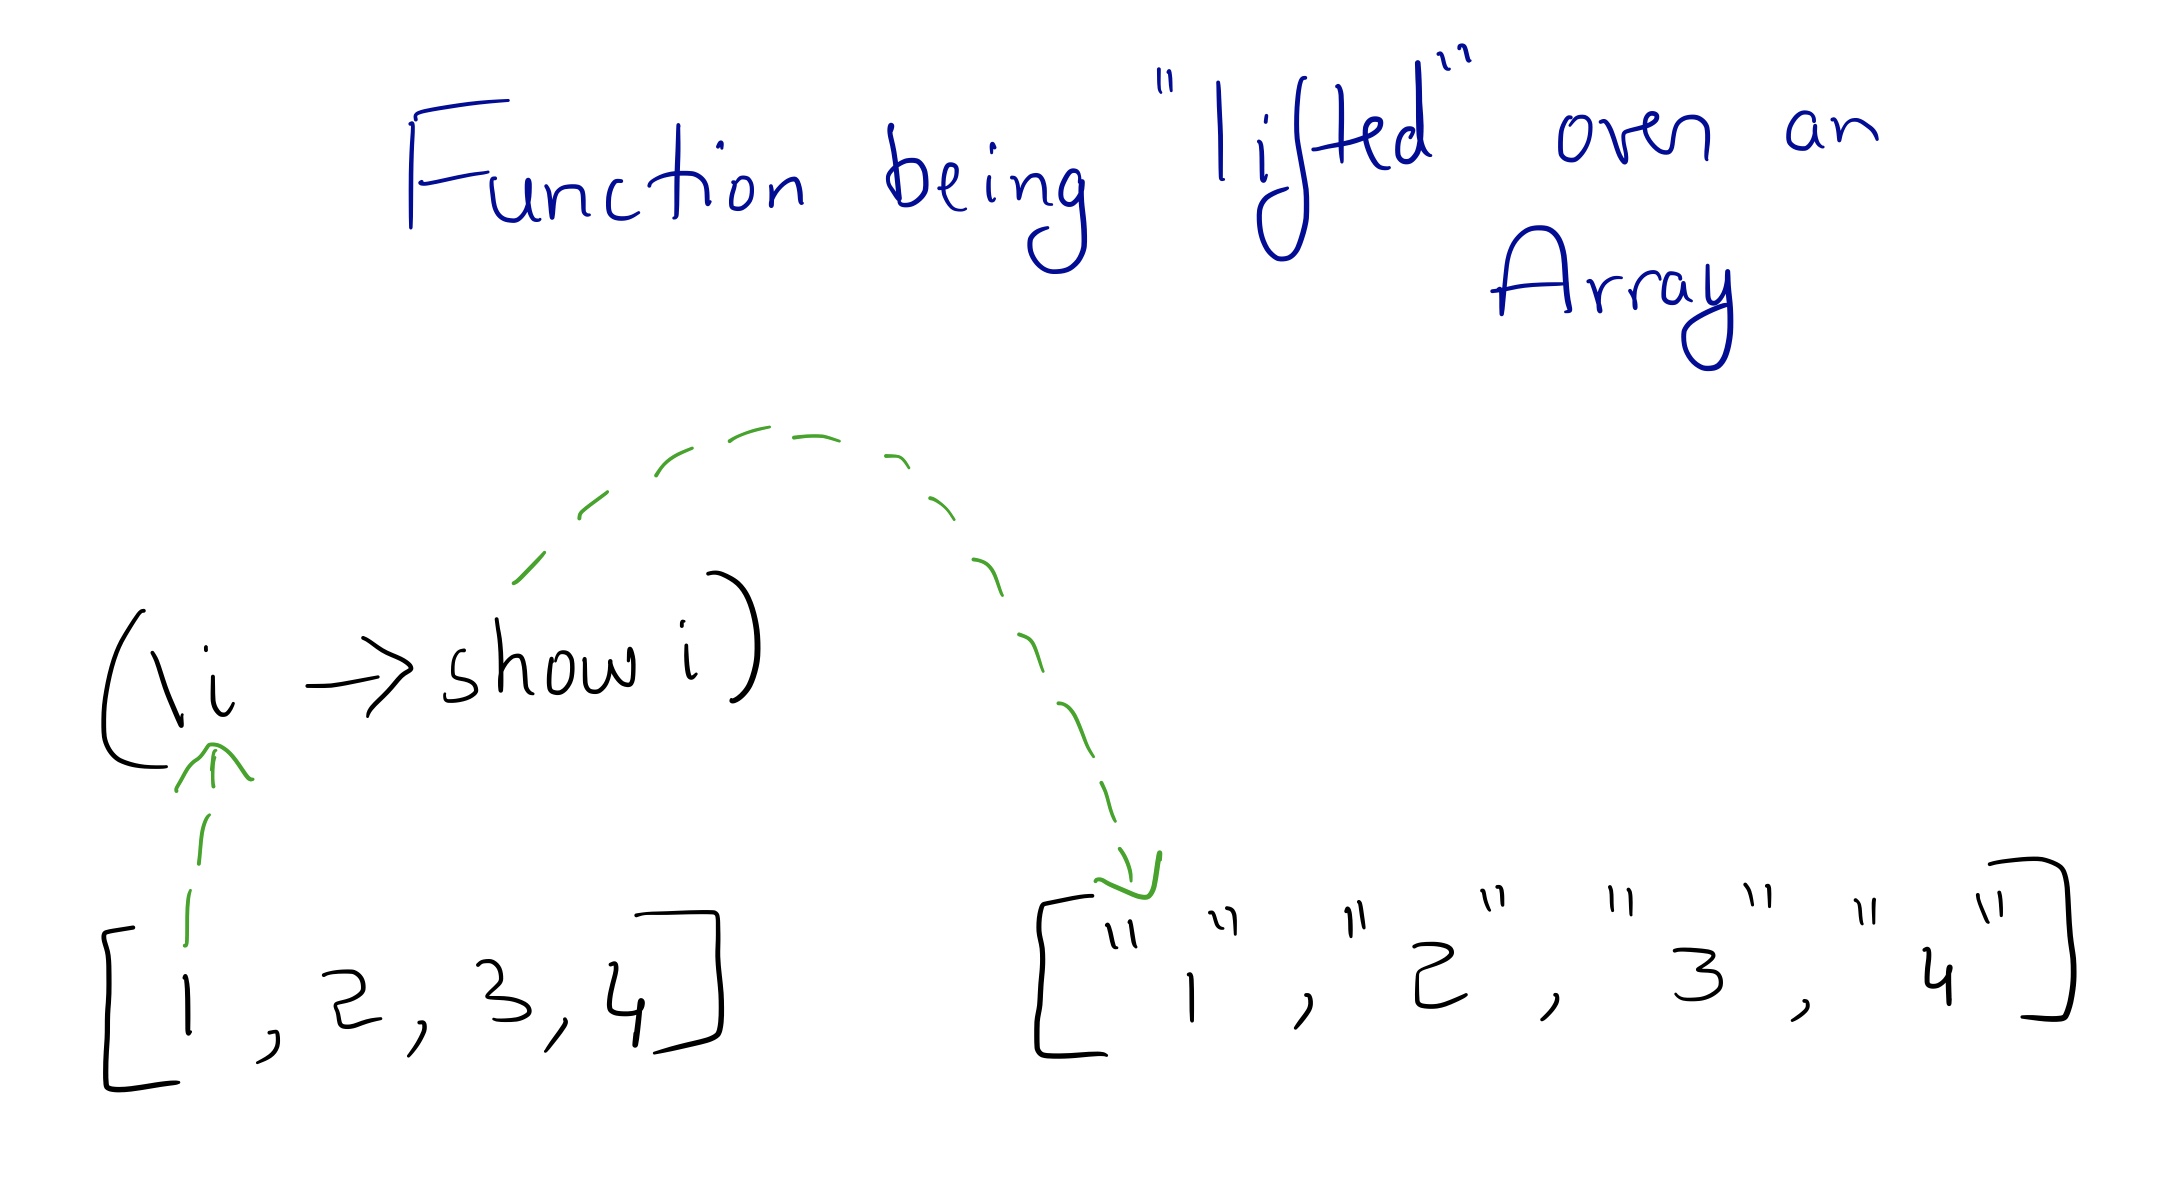 Function being "lifted" over an
Array
(\i -> show i)
[1, 2, 3, 4] ["1", "2", "3", "4"]